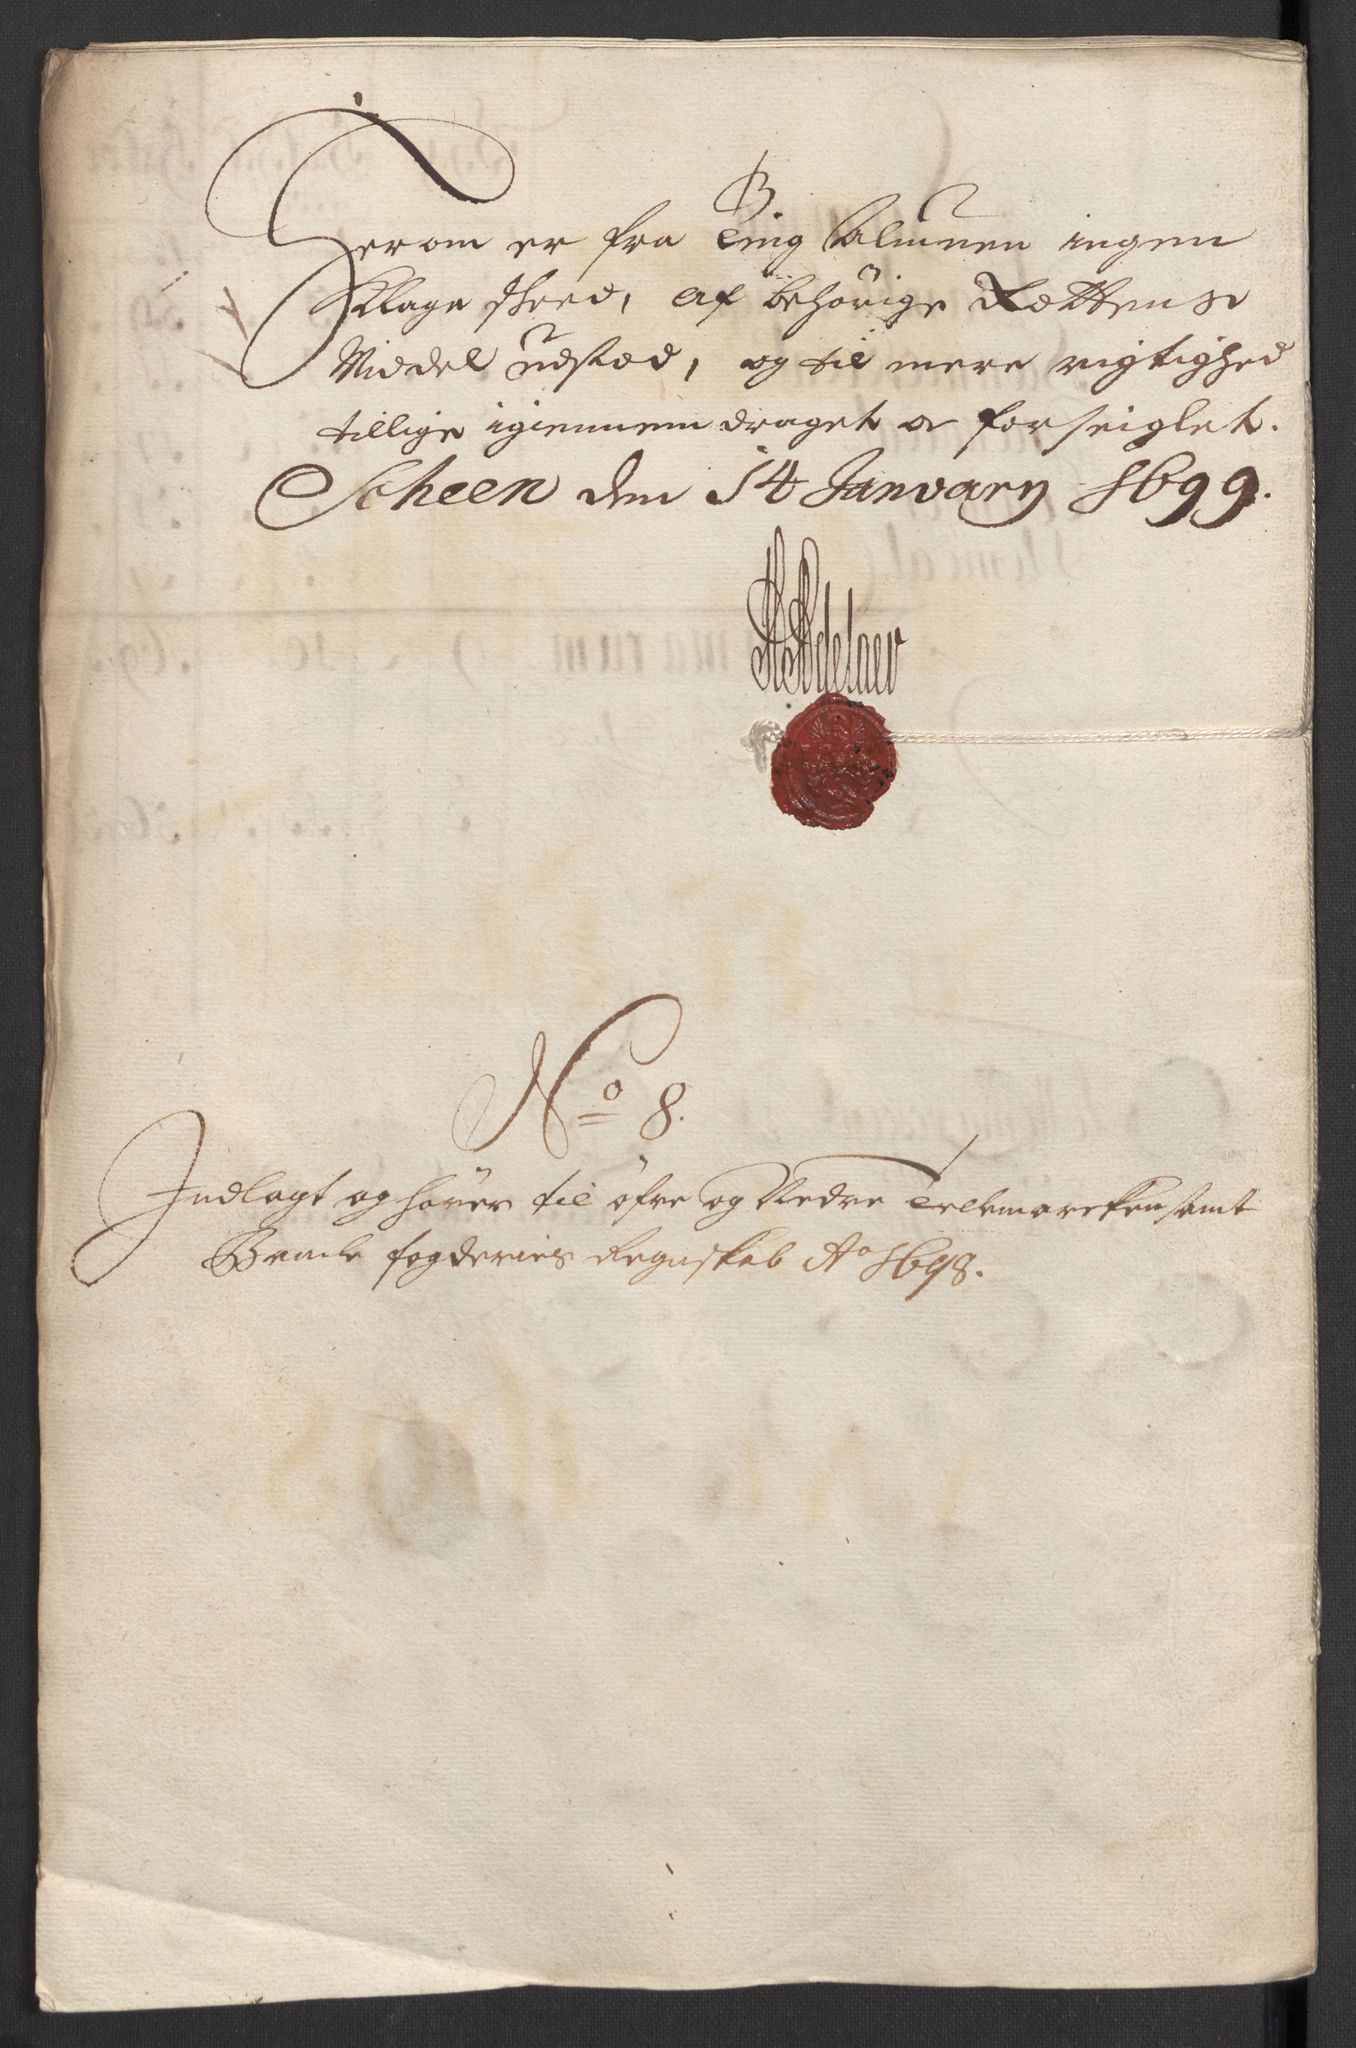 Herom er fra Ting Almuen ingen
Klage skeed, af behörige Rettens
Middel udstæd, og til mere rigtighed
tillige igiennemdraget oc forseiglet.
Scheen den 14 January 1699.
Adelaer
No 8.
Indlagt og hörer til öfre og Nedre Tellemarcken samt
Bamle fogderies Regnskab Ao 1698.